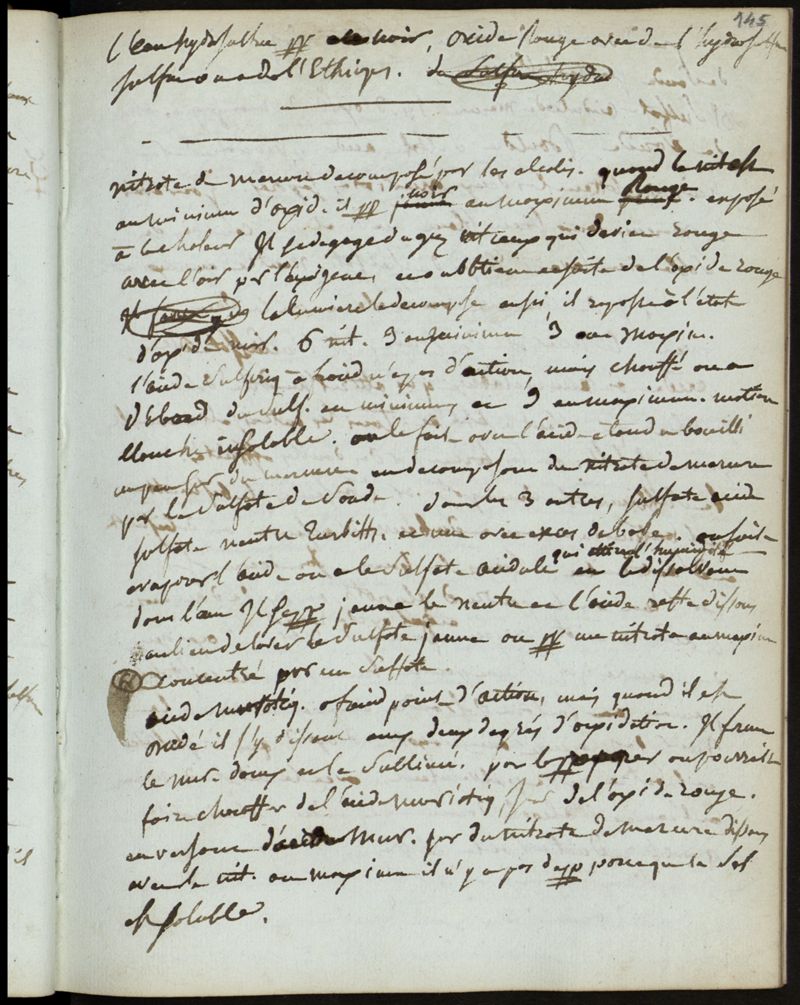 145
L'eau hydrosulfur pp en noir, oxide Rouge avec de l'hydrosulfure
sulfur ou de l'Ethiops. du
nitrate de mercure decomposé par les alcalis. quand le nit est
au minimum d'oxid. il pp noir au maximum Rouge. exposé
à la chaleur Il se degage du gaz nit qui devien rouge
avec l'air par l'oxigene, on obtien ensuite de l'oxide rouge
la lumiere le decompose aussi il repasse à l'état
d'oxid noir. 6 nit. 3 au minimum 3 au maxim.
l'acide Sulfuriq à froid n'a pas d'action, mais chauffé on a
d'abord du Sulf. au minimum et 3 au maximum.
blanche insoluble. on le fait avec l'acide etendu bouilli
un peu sur du mercure en decomposant du nitrate de mercure
par le Sulfate de Soude. dans les 3 autres, sulfate acide
sulfate neutre Turbith. et une avec exces de base. on fait
evaporer l'acide on a le Sulfate acidule qui attire l'humidité en le dissolvant
dans l'eau Il se pp jaune le neutre et l'acide reste dissous
au lieu de laver le Sulfate jaune on pp un nitrate au maxim
concentré par un Sulfate.
acide muriatiq. a froid point d'action, mais quand il est
oxidé il s'y dissout aux deux degrés d'oxidation. Il forme
le mur. doux et le Sublimé. par le on pourrait
faire chauffer de l'acide muriatiq sur de l'oxide rouge.
en versant d'acide Mur. sur du nitrate de mercure dissous
avec le nit. au maximum il n'y a pas de pp parce que le Sel
est soluble.